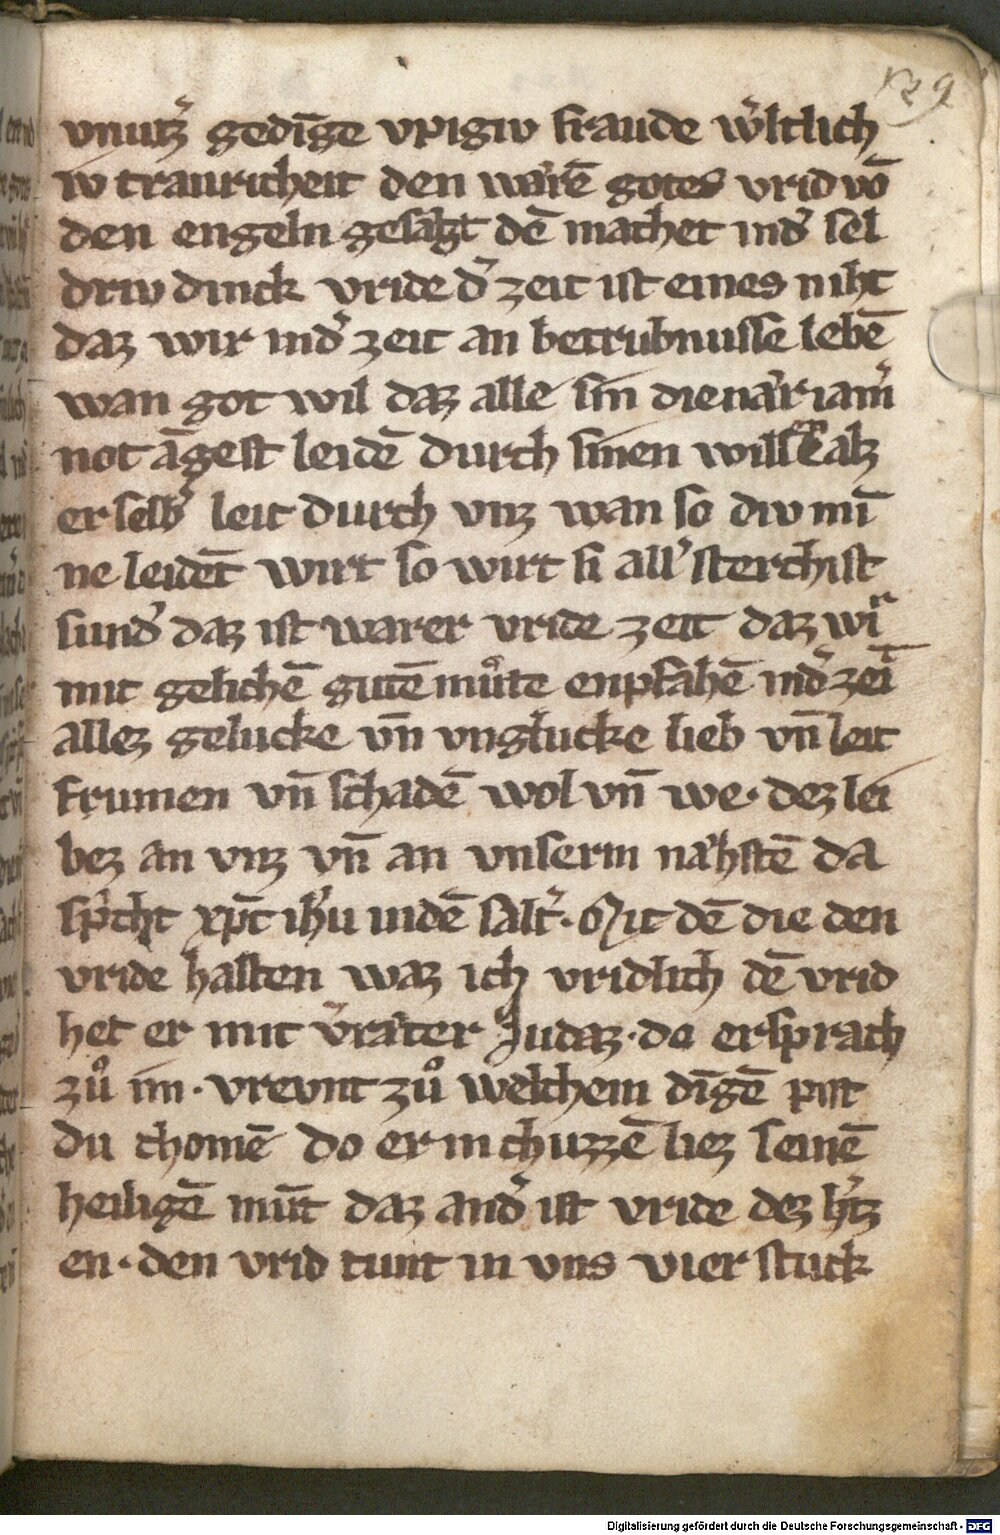 129
vnutz̾ gedīge vpigiv fraude w̾ltlich
iv trauricheit den warē gotes vrid vō
den engeln gesagt dē machet ind̾ sel
driv dinck vride d̾ zeit ist eines niht
daz wir ind̾ zeit an betrubnusse lebē
wan got wil daz alle sin dienar iam̾
not āgest leidē durch sinen willen alz
er selb̾ leit durch vnz wan so div mī
ne leidēt wirt so wirt si all̾ sterchist
sund̾ daz ist warer vride zeit daz wir
mit gelichē gutē muͦte enpfahē ind̾ zeīt
allez gelucke vn̄ vnglucke lieb vn̄ leit
frumen vn̄ schadē wol vn̄ we · dez lei
bez an vnz vn̄ an vnserm nahstē da
sp̾icht xp̄c ih̾u indē salt̾ · Mit dē die den
vride hasten waz ich vridlich dē vrid
het er mit v̾rater Judaz · do er sprach
zuͦ im · vrevnt zuͦ welchem dīgē pist
du chomē do er in chuzzē liez seinē
heiligē mūt daz and̾ ist vride dez h̾tz
en · den vrid tunt in vns vier stuck
Digitalisierung gefördert durch die Deutsche Forschungsgemeinschaft - DFG